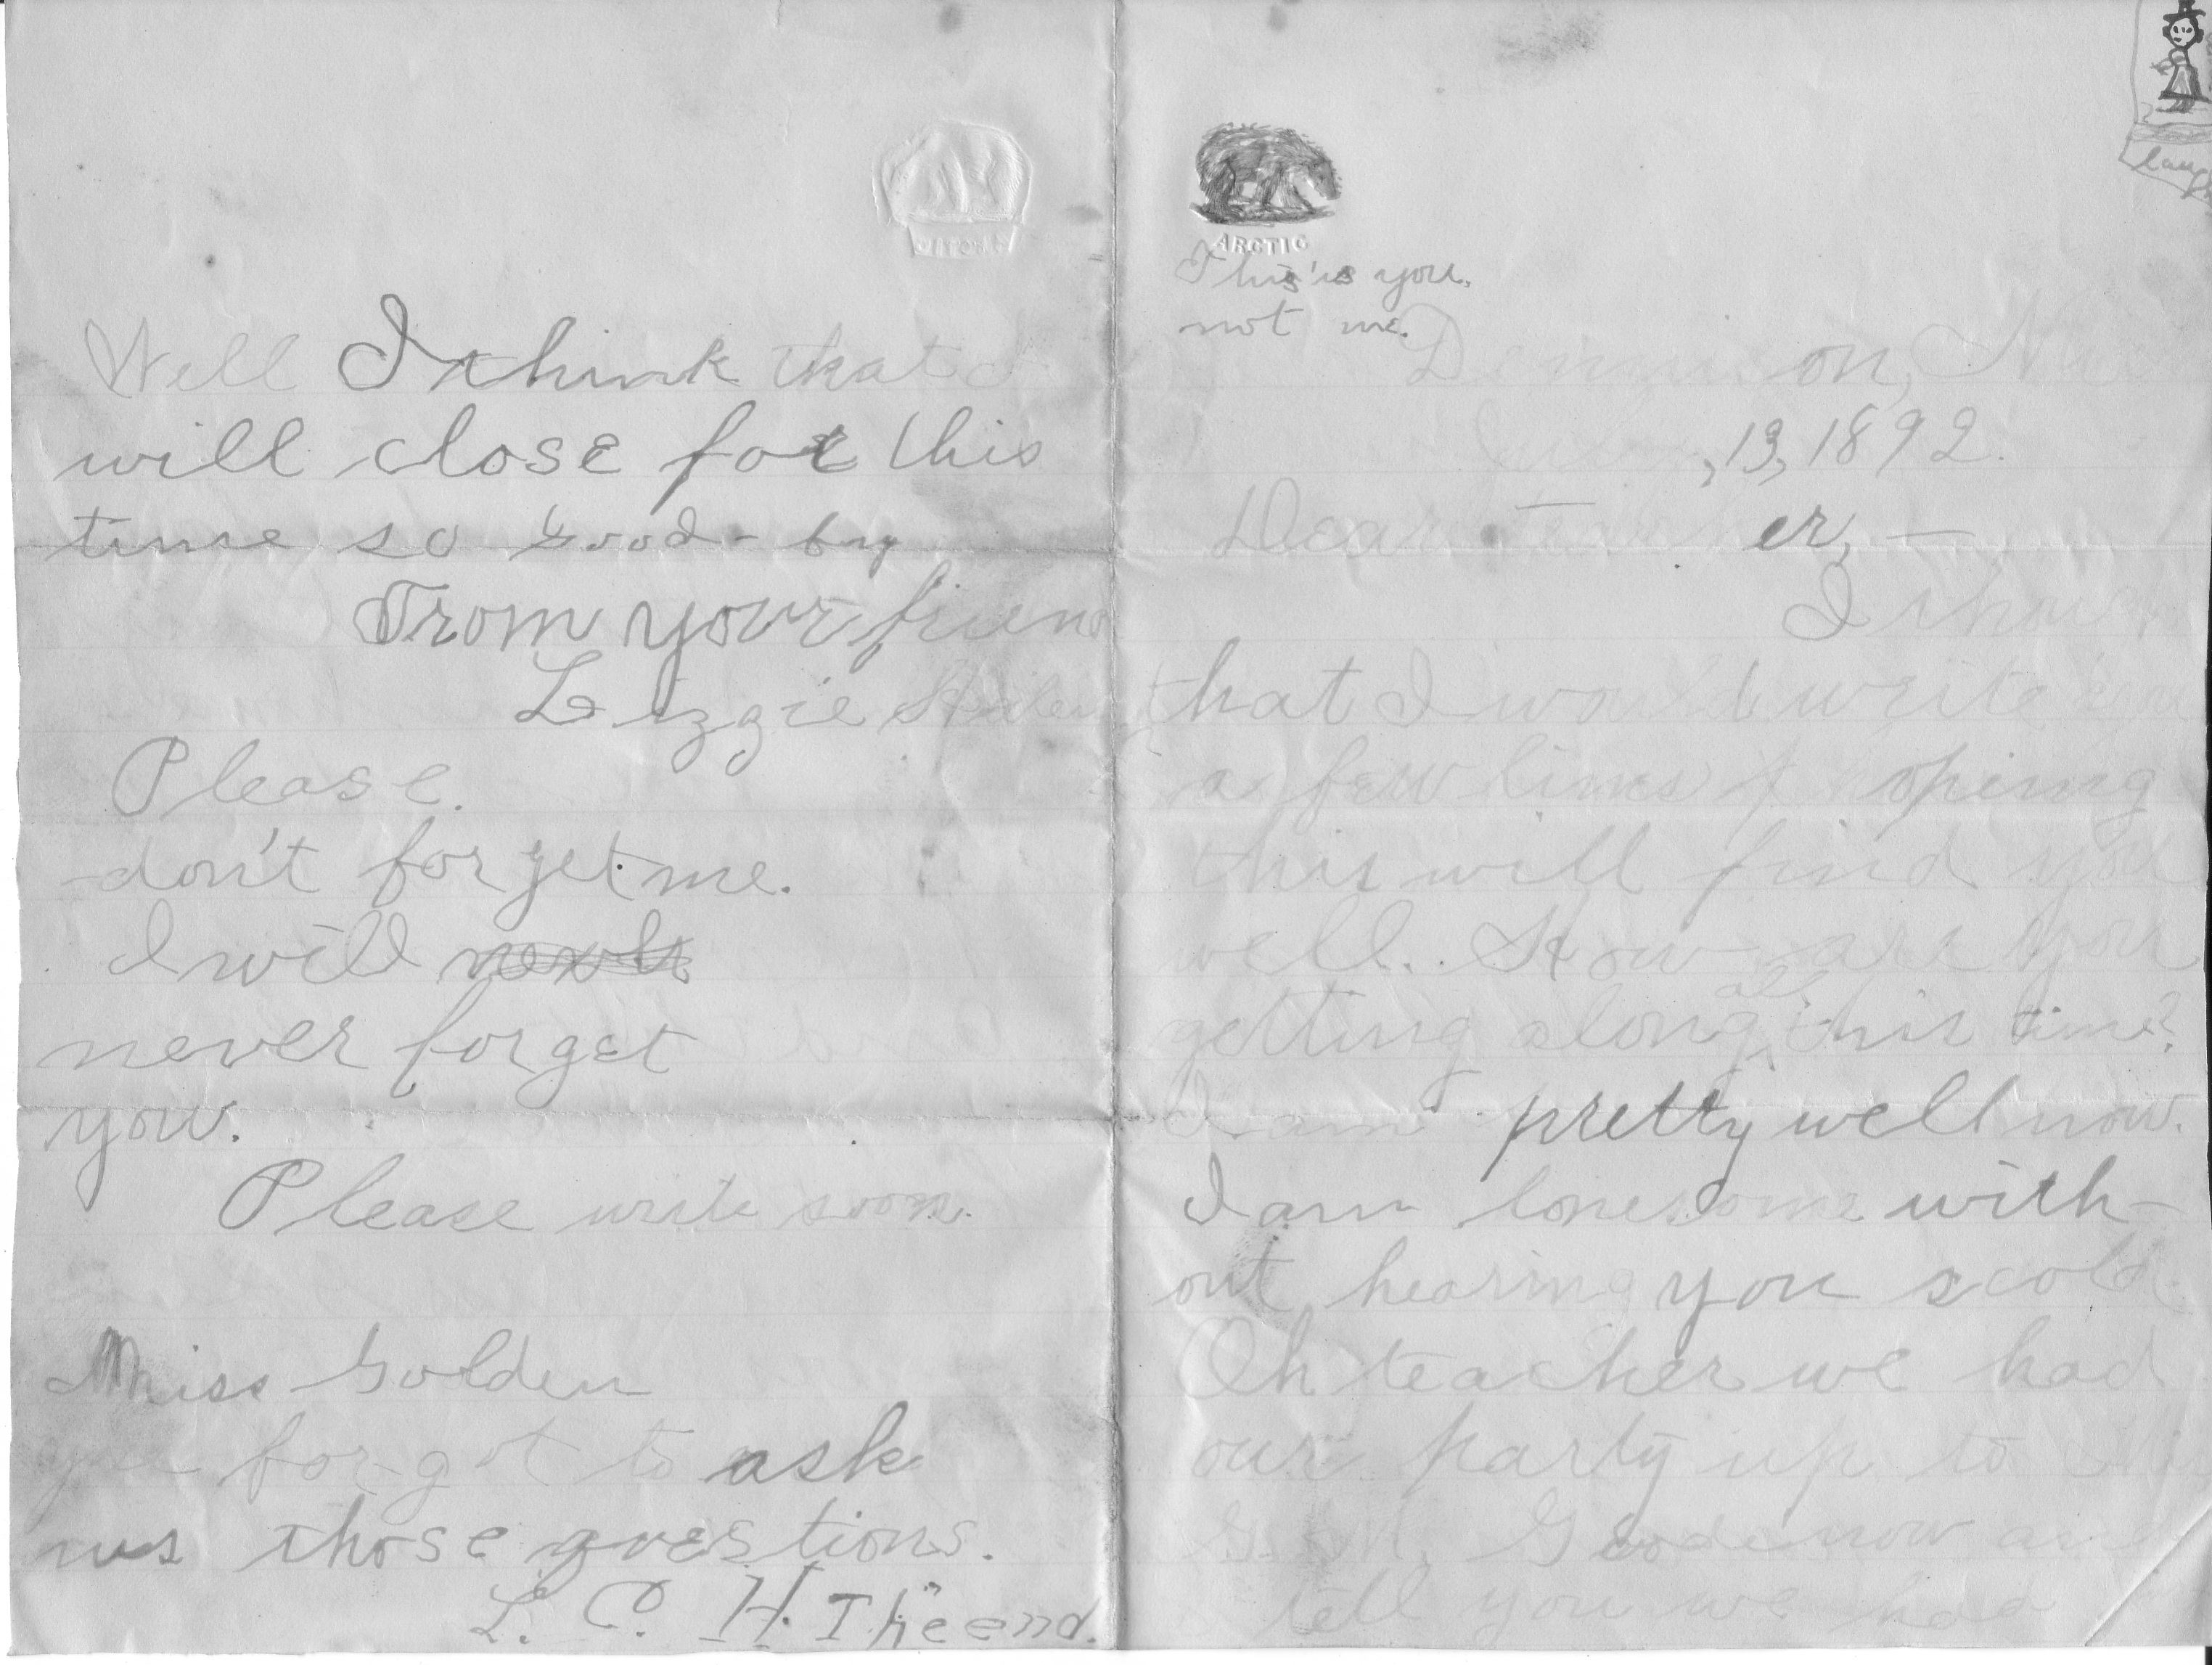 Well I think that I
will close for this
time so Good-by
From your friend
Lizzie
Please.
don't forget me.
I will
never forget
you.
Please write soon.
Miss Golden
you forgot to ask
us those questions.
L. C. H. The end.
ARCTIC
This is you.
not me.
Dennison,
,13, 1892.
Dear teacher, —
I thought
that I would write you
a few lines hoping
this will find you
well. How are you
getting along all this time?
I am pretty well now.
I am lonesome with-
out hearing you scold.
Oh teacher we had
our party up to
G. M. Goodenow and
tell you we had